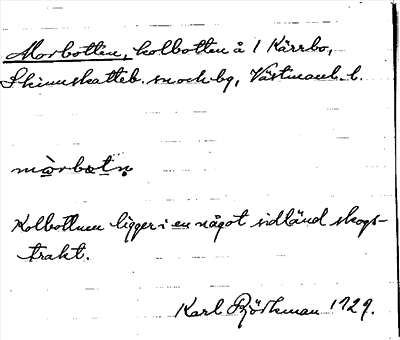 Morbotten, kolbotten å 1 Kärrbo,
Skinnskatteb. sn och bg, Västmanl. l.
mòrbɔtn̥
Kolbottnen ligger i en något sidländ skogs-
trakt.
Karl Björkman 1929.